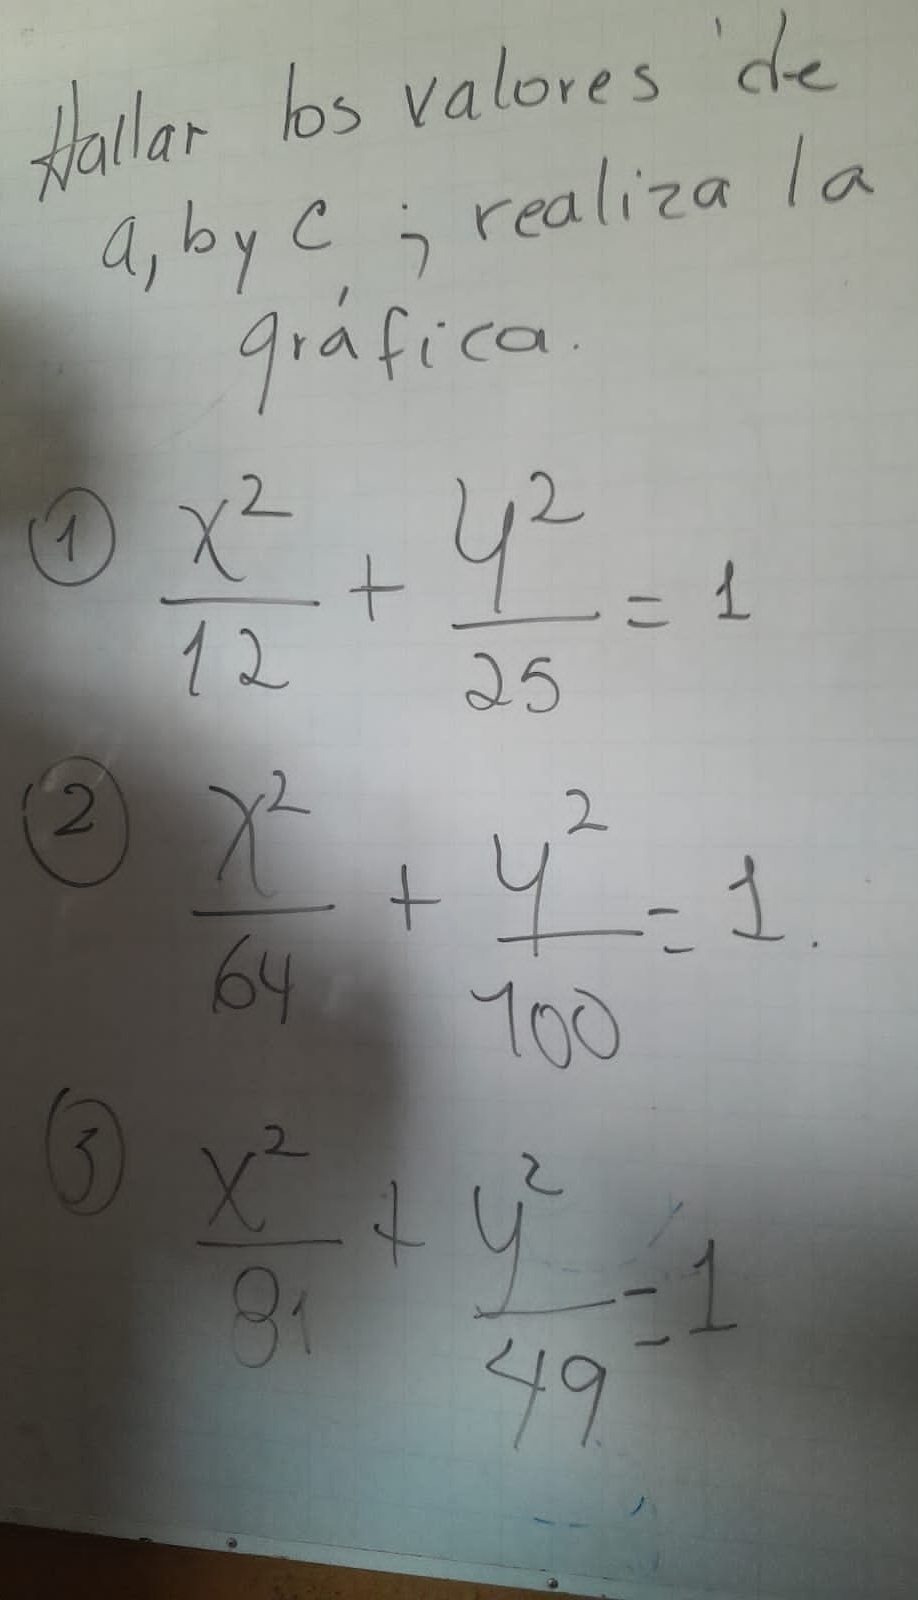 Hallar los valores de
a, b y c ; realiza la
gráfica.
① x²/12 + y²/25 = 1
② x²/64 + y²/100 = 1.
③ x²/81 + y²/49 = 1